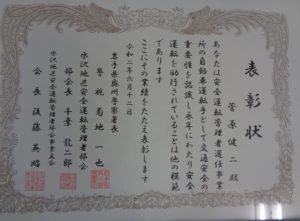 表彰状
菅原健二殿
あなたは安全運転管理者選任事業
所の自動車運転手として交通安全の
重要性を認識し永年にわたり安全
運転を励行されていることは他の模範
であります
ここにその業績をたたえ表彰します
令和二年六月十二日
岩手県奥州警察署長
警視 菊地一也
水沢地区安全運転管理者部会
部会長 千葉龍二郎
水沢地区安全運転管理者部会事業主会
会長 後藤英昭